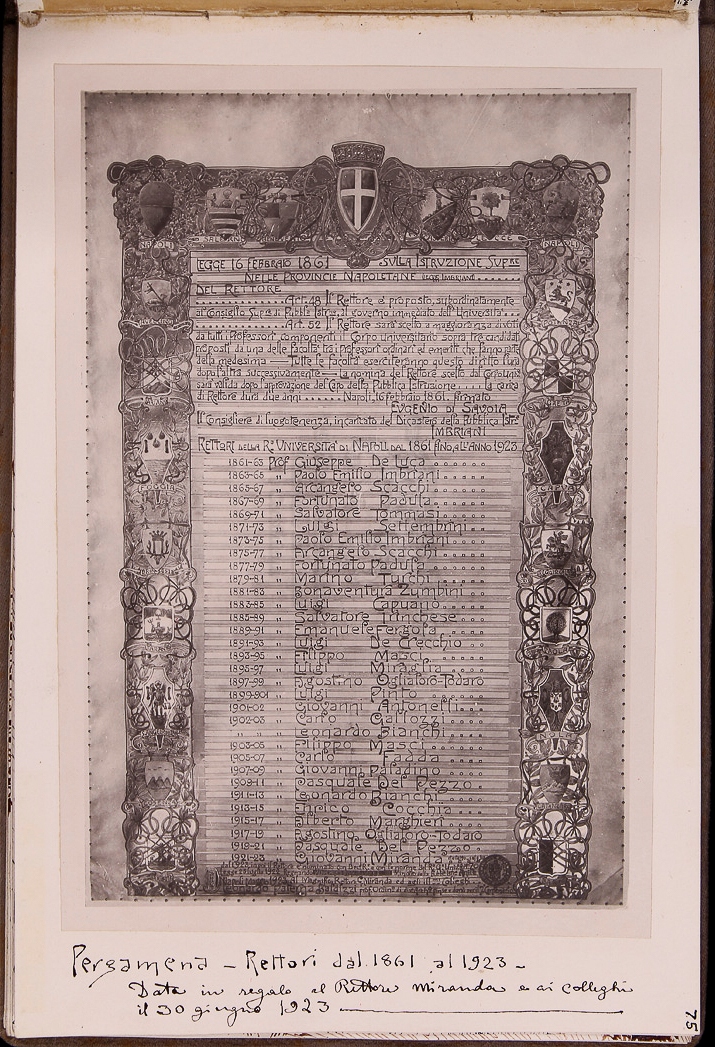 NAPOLI
NAPOLI
LEGGE 16 FEBBRAIO 1861 SULLA ISTRUZIONE SUP.RE
NELLE PROVINCIE NAPOLETANE
DEL RETTORE
Art. 48 Il Rettore è proposto, subordinatamente
al Consiglio Sup.re di Pubbl.a Istr.ne, al governo immediato dell'Università.
Art. 52 Il Rettore sarà scelto a maggioranza di voti
da tutti i Professori componenti il Corpo universitario sopra tre candidati
proposti da una delle Facoltà tra i professori ordinari ed emeriti che fanno parte
della medesima — Tutte le facoltà eserciteranno questo diritto l'una
dopo l'altra successivamente — La nomina del Rettore scelto dal Corpo univ.
sarà valida dopo l'approvazione del Capo della Pubblica Istruzione. La carica
di Rettore dura due anni Napoli, 16 febbraio 1861. firmato
EUGENIO DI SAVOIA
Il Consigliere di luogotenenza, incaricato del Dicastero della Pubblica Istr.
IMBRIANI
RETTORI DELLA R.A UNIVERSITA' DI NAPOLI DAL 1861 FINO ALL'ANNO 1923
1861-63 Prof Giuseppe De Luca
1863-65 " Paolo Emilio Imbriani
1865-67 " Arcangelo Scacchi
1867-69 " Fortunato Padula
1869-71 " Salvatore Tommasi
1871-73 " Luigi Settembrini
1873-75 " Paolo Emilio Imbriani
1875-77 " Arcangelo Scacchi
1877-79 " Fortunato Padula
1879-81 " Marino Turchi
1881-83 " Bonaventura Zumbini
1883-85 " Luigi Capuano
1885-89 " Salvatore Trinchese
1889-91 " Emanuele Fergola
1891-93 " Luigi De Crecchio
1893-95 " Filippo Masci
1895-97 " Luigi Miraglia
1897-99 " Agostino Oglialoro-Todaro
1899-901 " Luigi Pinto
1901-02 " Giovanni Antonelli
1902-03 " Carlo Gallozzi
" " " Leonardo Bianchi
1903-05 " Filippo Masci
1905-07 " Carlo Fadda
1907-09 " Giovanni Paladino
1909-11 " Pasquale Del Pezzo
1911-13 " Leonardo Bianchi
1913-15 " Enrico Cocchia
1915-17 " Alberto Marghieri
1917-19 " Agostino Oglialoro-Todaro
1919-21 " Pasquale Del Pezzo
1921-23 " Giovanni Miranda
Pergamena – Rettori dal 1861 al 1923 –
Data in regalo al Rettore Miranda e ai colleghi
il 30 giugno 1923
75